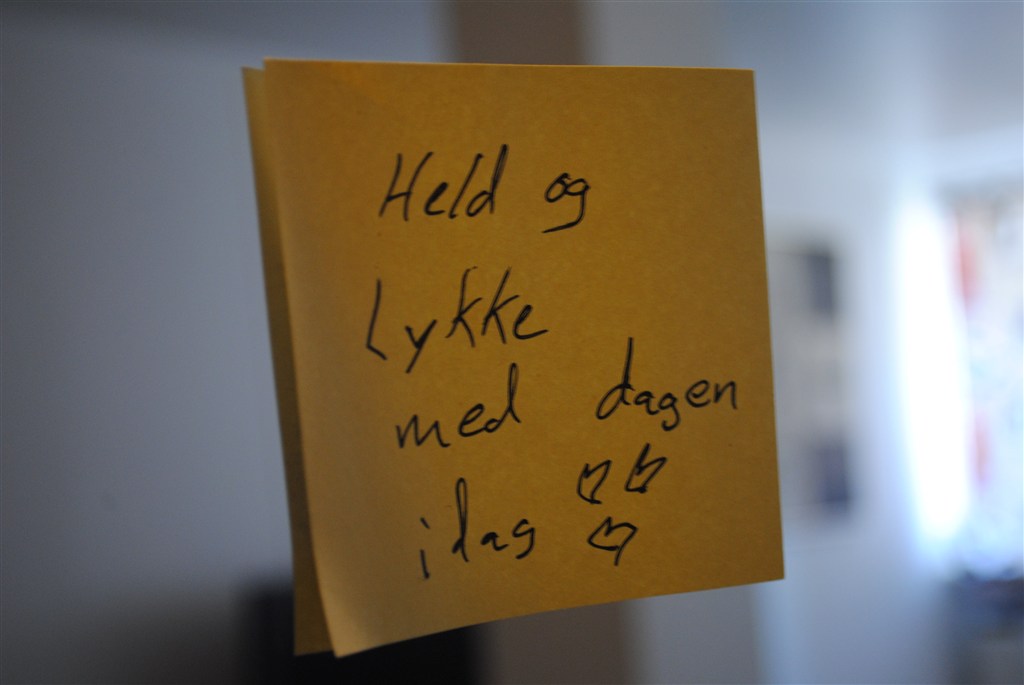 Held og
Lykke
med dagen
idag